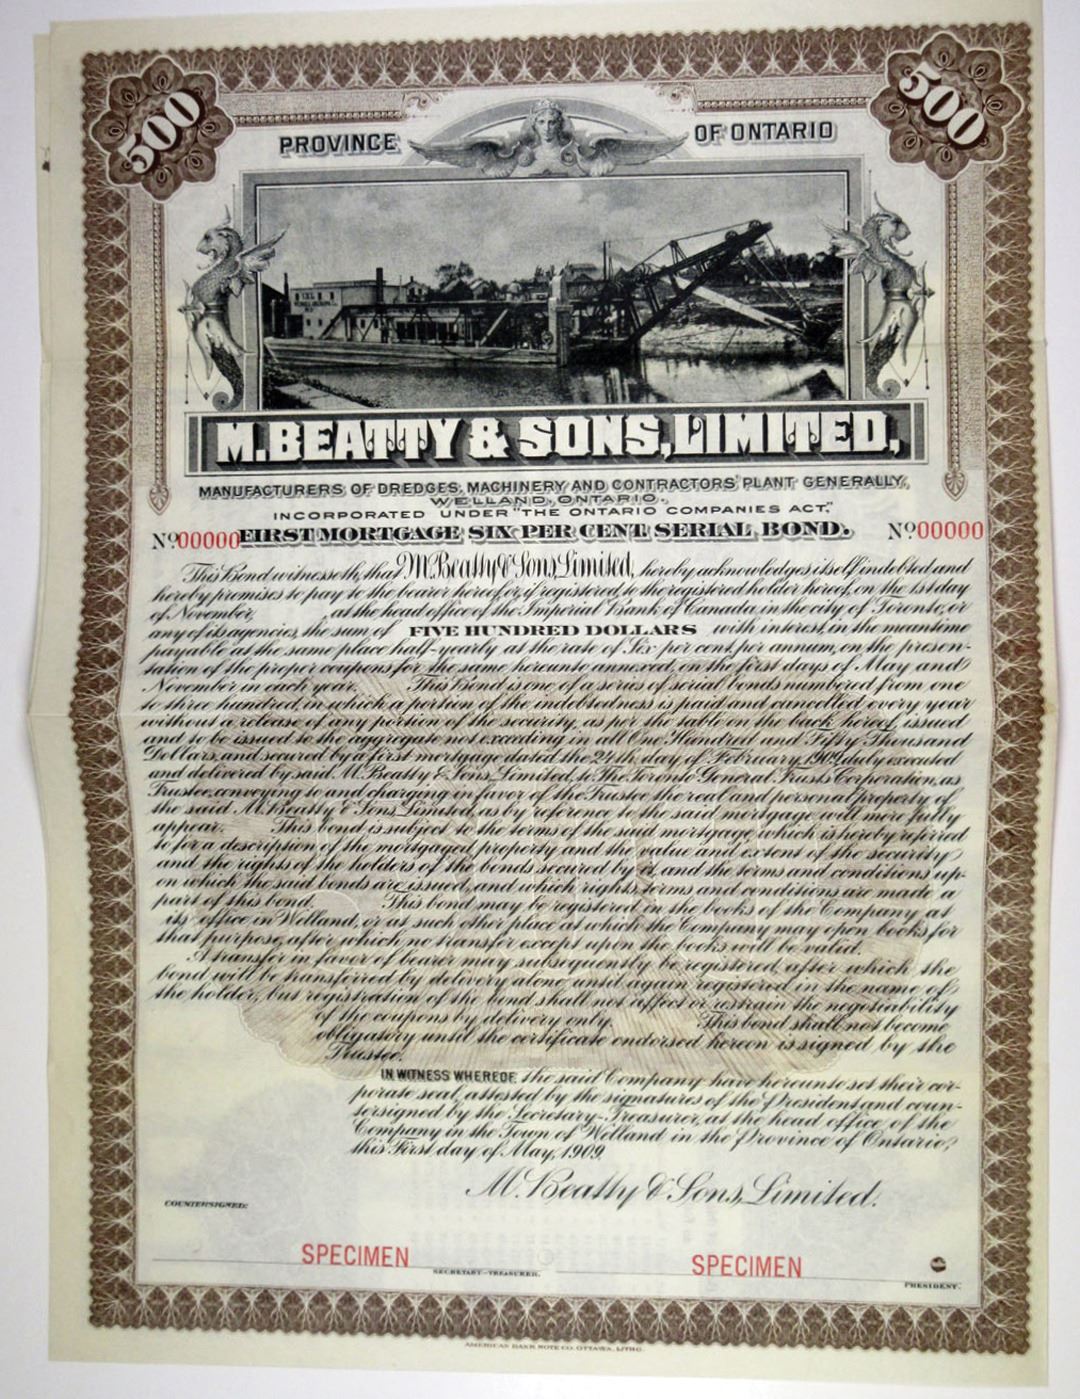 500
500
PROVINCE OF ONTARIO
M. BEATTY & SONS, LIMITED,
MANUFACTURERS OF DREDGES, MACHINERY AND CONTRACTORS' PLANT GENERALLY,
WELLAND, ONTARIO.
INCORPORATED UNDER "THE ONTARIO COMPANIES ACT."
Nº 00000 FIRST MORTGAGE SIX PER CENT SERIAL BOND. Nº 00000
This Bond witnesseth, that M. Beatty & Sons, Limited, hereby acknowledges itself indebted and
hereby promises to pay to the bearer hereof, or, if registered, to the registered holder hereof, on the 1st day
of November, at the head office of the Imperial Bank of Canada in the city of Toronto, or
any of its agencies, the sum of FIVE HUNDRED DOLLARS with interest, in the meantime
payable at the same place half-yearly at the rate of Six per cent, per annum, on the presen-
tation of the proper coupons for the same hereunto annexed, on the first days of May and
November in each year. This Bond is one of a series of serial bonds numbered from one
to three hundred, in which a portion of the indebtedness is paid and cancelled every year
without a release of any portion of the security, as per the table on the back hereof, issued
and to be issued to the aggregate not exceeding in all One Hundred and Fifty Thousand
Dollars, and secured by a first mortgage dated the 24th day of February, 1909, duly executed
and delivered by said M. Beatty & Sons, Limited, to The Toronto General Trusts Corporation, as
Trustee, conveying to and charging in favor of the Trustee the real and personal property of
the said M. Beatty & Sons, Limited, as by reference to the said mortgage will more fully
appear. This bond is subject to the terms of the said mortgage, which is hereby referred
to for a description of the mortgaged property and the value and extent of the security
and the rights of the holders of the bonds secured by it, and the terms and conditions up-
on which the said bonds are issued, and which rights, terms and conditions are made a
part of this bond. This bond may be registered in the books of the Company at
its office in Welland, or at such other place at which the Company may open books for
that purpose, after which no transfer except upon the books will be valid.
A transfer in favor of bearer may subsequently be registered, after which the
bond will be transferred by delivery alone until again registered in the name of
the holder, but registration of the bond shall not affect or restrain the negotiability
of the coupons by delivery only. This bond shall not become
obligatory until the certificate endorsed hereon is signed by the
Trustee.
IN WITNESS WHEREOF, the said Company have hereunto set their cor-
porate seal, attested by the signatures of the President and coun-
tersigned by the Secretary-Treasurer, at the head office of the
Company in the Town of Welland in the Province of Ontario,
this First day of May, 1909.
M. Beatty & Sons, Limited.
COUNTERSIGNED:
SPECIMEN SPECIMEN
SECRETARY-TREASURER. PRESIDENT.
AMERICAN BANK NOTE CO. OTTAWA, LITHO.